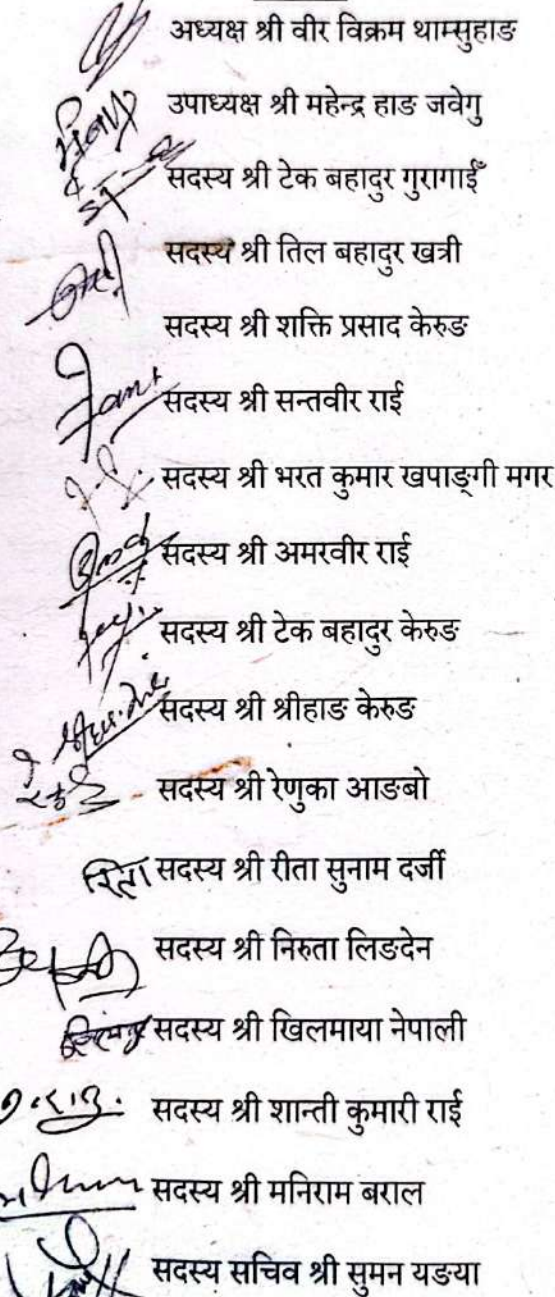 अध्यक्ष श्री वीर विक्रम थाम्सुहाङ
उपाध्यक्ष श्री महेन्द्र हाङ जवेगु
सदस्य श्री टेक बहादुर गुरागाईँ
सदस्य श्री तिल बहादुर खत्री
सदस्य श्री शक्ति प्रसाद केरुङ
सदस्य श्री सन्तवीर राई
सदस्य श्री भरत कुमार खपाङ्गी मगर
सदस्य श्री अमरवीर राई
सदस्य श्री टेक बहादुर केरुङ
सदस्य श्री श्रीहाङ केरुङ
सदस्य श्री रेणुका आङबो
रिता सदस्य श्री रीता सुनाम दर्जी
सदस्य श्री निरुता लिङदेन
सदस्य श्री खिलमाया नेपाली
सदस्य श्री शान्ती कुमारी राई
सदस्य श्री मनिराम बराल
सदस्य सचिव श्री सुमन यङया